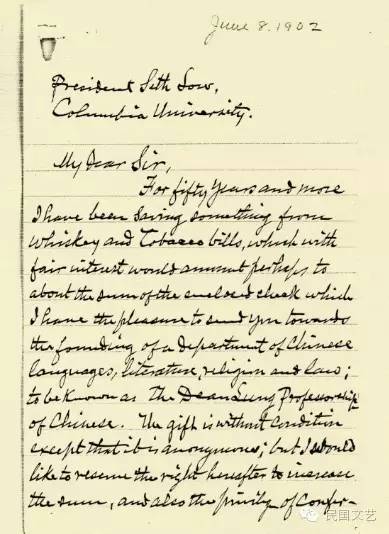 June 8. 1902
President Seth Low,
Columbia University.
My Dear Sir,
For fifty years and more
I have been saving something from
whiskey and Tobacco bills, which with
fair interest would amount perhaps to
about the sum of the enclosed check which
I have the pleasure to send you towards
the founding of a Department of Chinese
languages, literature, religion and law;
to be known as The Dean Lung Professorship
of Chinese. The gift is without condition
except that it is anonymous; but I would
like to reserve the right hereafter to increase
the sum, and also the privity of Confer-
民国文艺